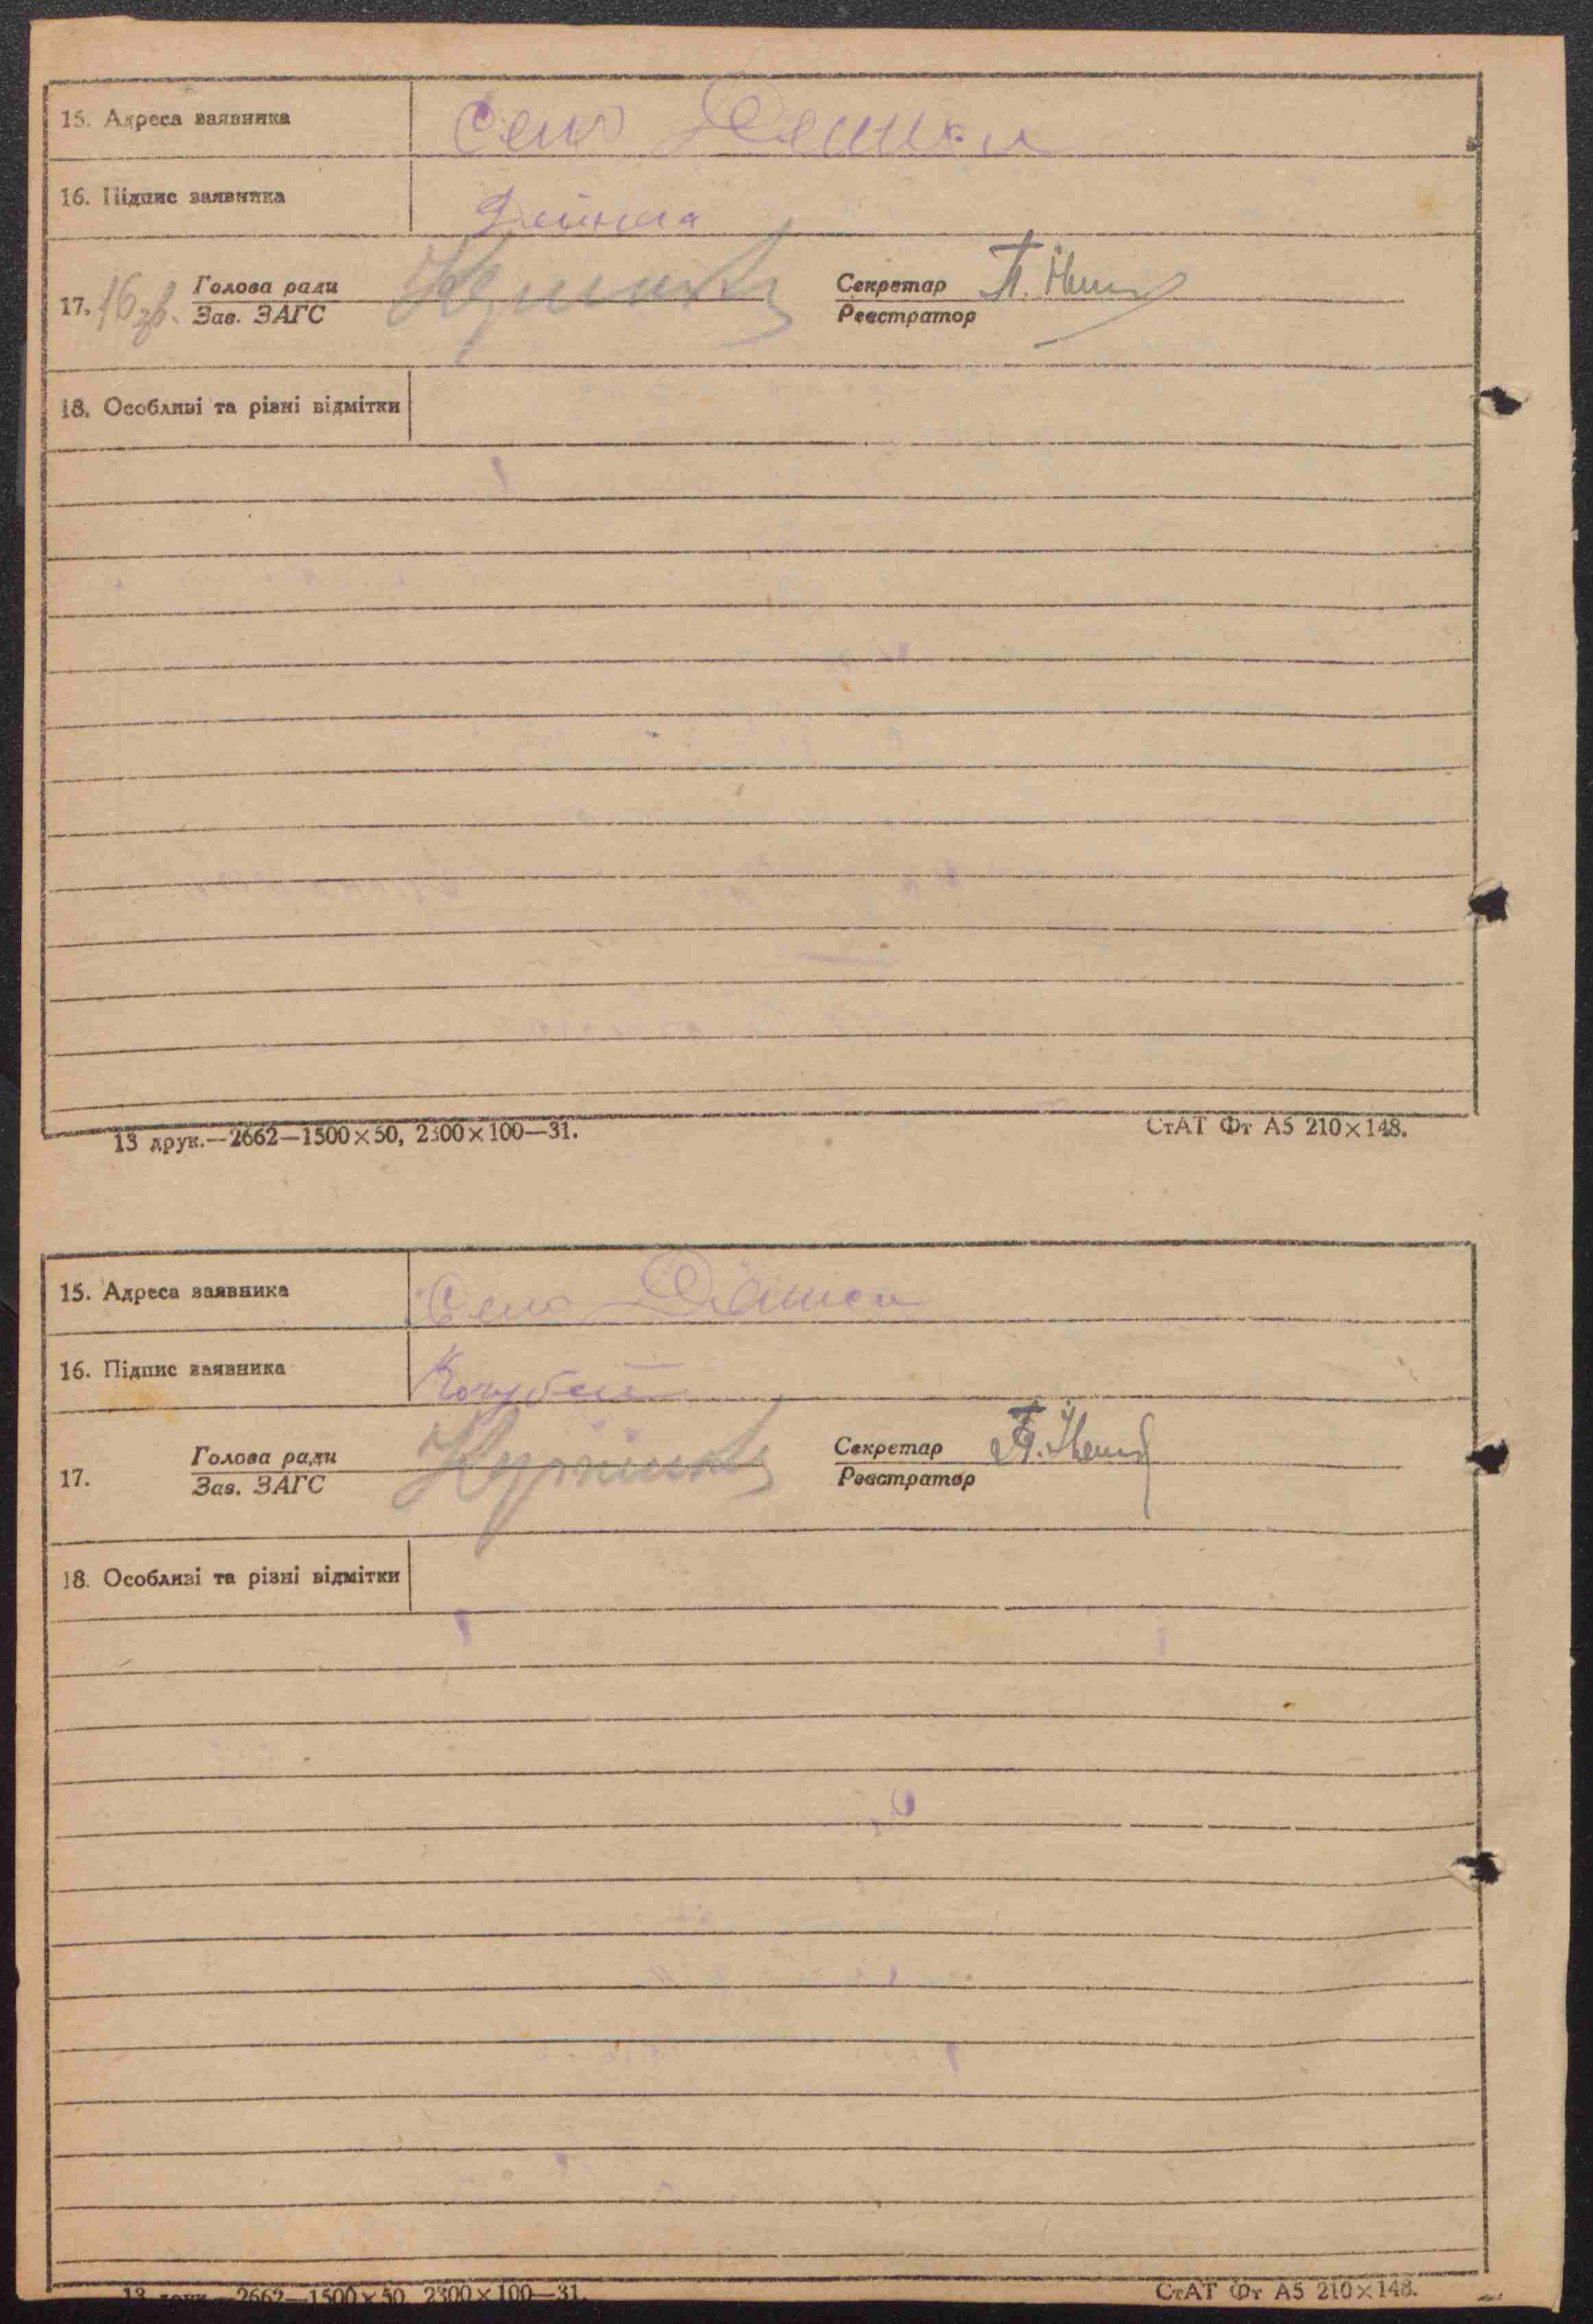 15. Адреса заявника Село Дяшки
16. Підпис заявника
17. 16 Голова ради Секретар П.
Зав. ЗАГС Реєстратор
18. Особливі та різні відмітки
13 друк.—2662—1500×50, 2300×100—31. СтАТ Фт А5 210×148.
15. Адреса заявника Село Дяшки
16. Підпис заявника Кочубей
17. Голова ради Секретар
Зав. ЗАГС Реєстратор
18. Особливі та різні відмітки
13 друк.—2662—1500×50, 2300×100—31. СтАТ Фт А5 210×148.